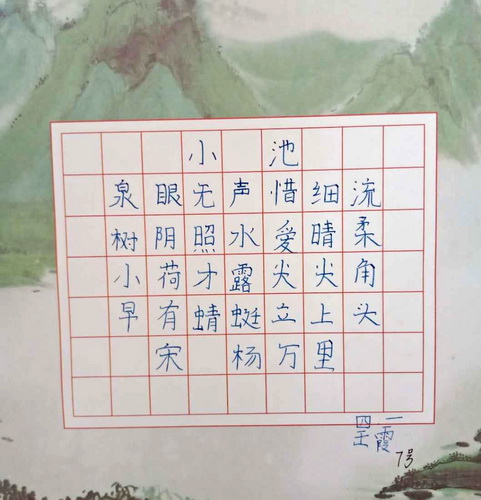 小池
泉眼无声惜细流
树阴照水爱晴柔
小荷才露尖尖角
早有蜻蜓立上头
宋 杨万里
四一
王霞
7号